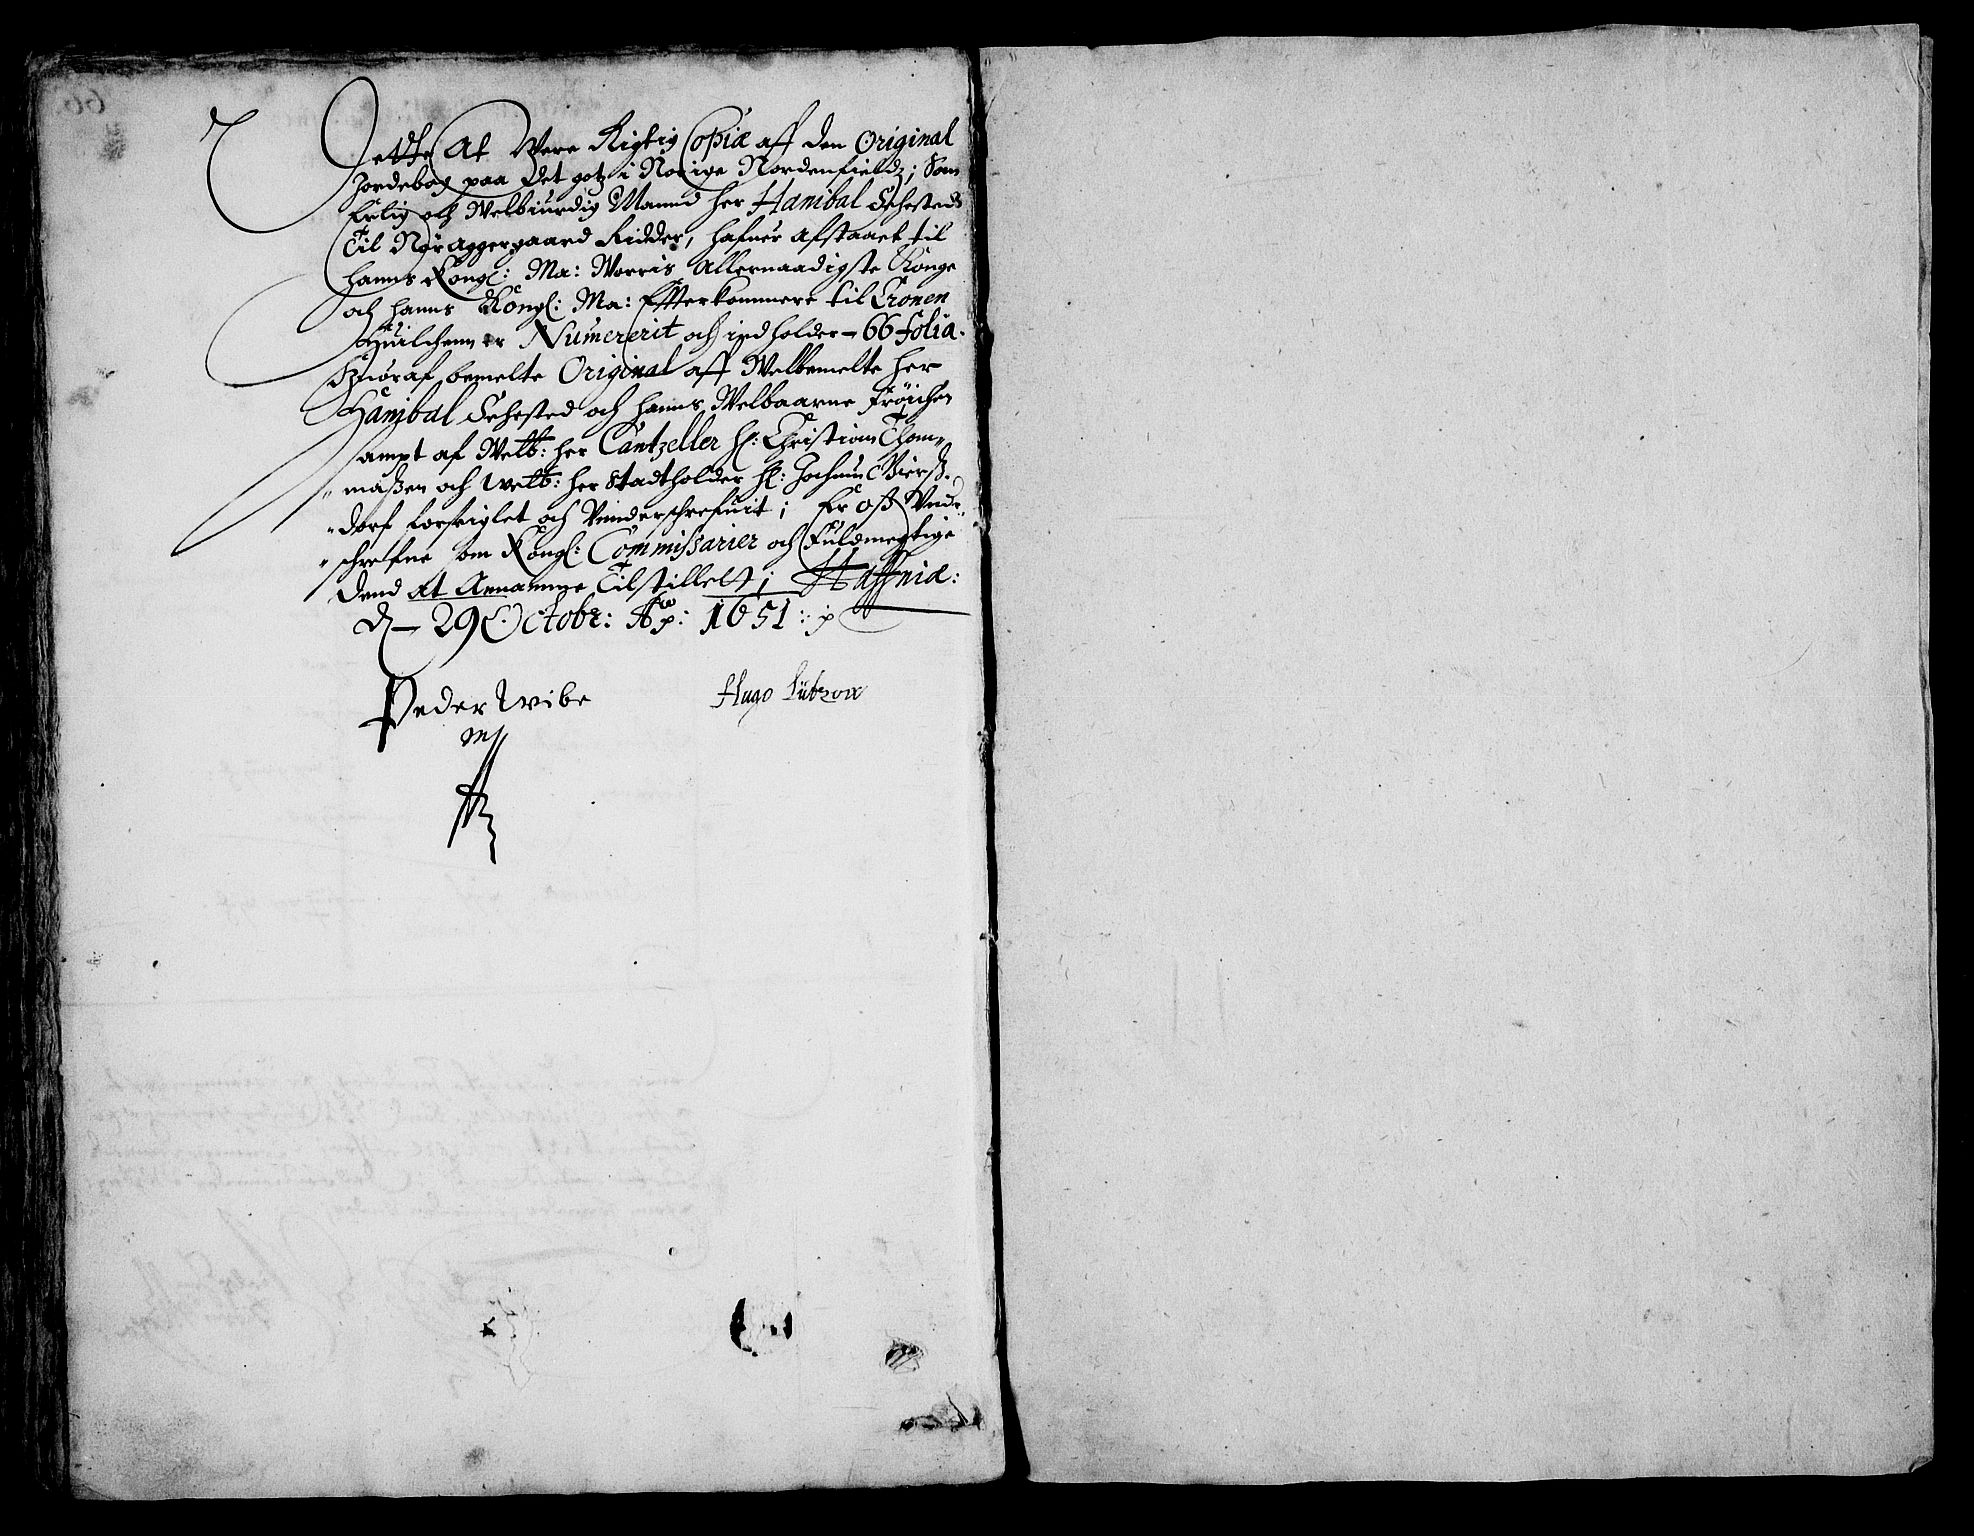 Dette At Vere Rigtig Copiæ aff den Original
Jordebog paa Det gotz i Norige Nordenfieldz; Som
Erlig och Welbiurdig Mannd her Hanibal Sehested
Til Nør Aggergaard Ridder, hafuer afstaaet til
hanns Kongl: Ma: Worris Allernaadigste Konge
och hanns Kongl: Ma: Effterkommere til Cronen
Huilchenn er Numererit och indholder 66 folia.
Huoraf bemelte Original aff Welbemelte her
Hanibal Sehested och hanns Welbaarne Frøichen
sampt af Welb: her Cantzeller Hr: Christian Thom„
„maßen och welb: her Stadtholder Hr: Jochum Vierß„
„dorf forseiglet och Vnderschrefuit; Er oß Vnde„
„schrefne som Kongl: Commißarier och Fuldmegtige
dend at Annamme Tilstillet; Haffniæ:
d 29 Octobr: Ao: 1651:
Peder Wibe
Hugo Lützow
Mp